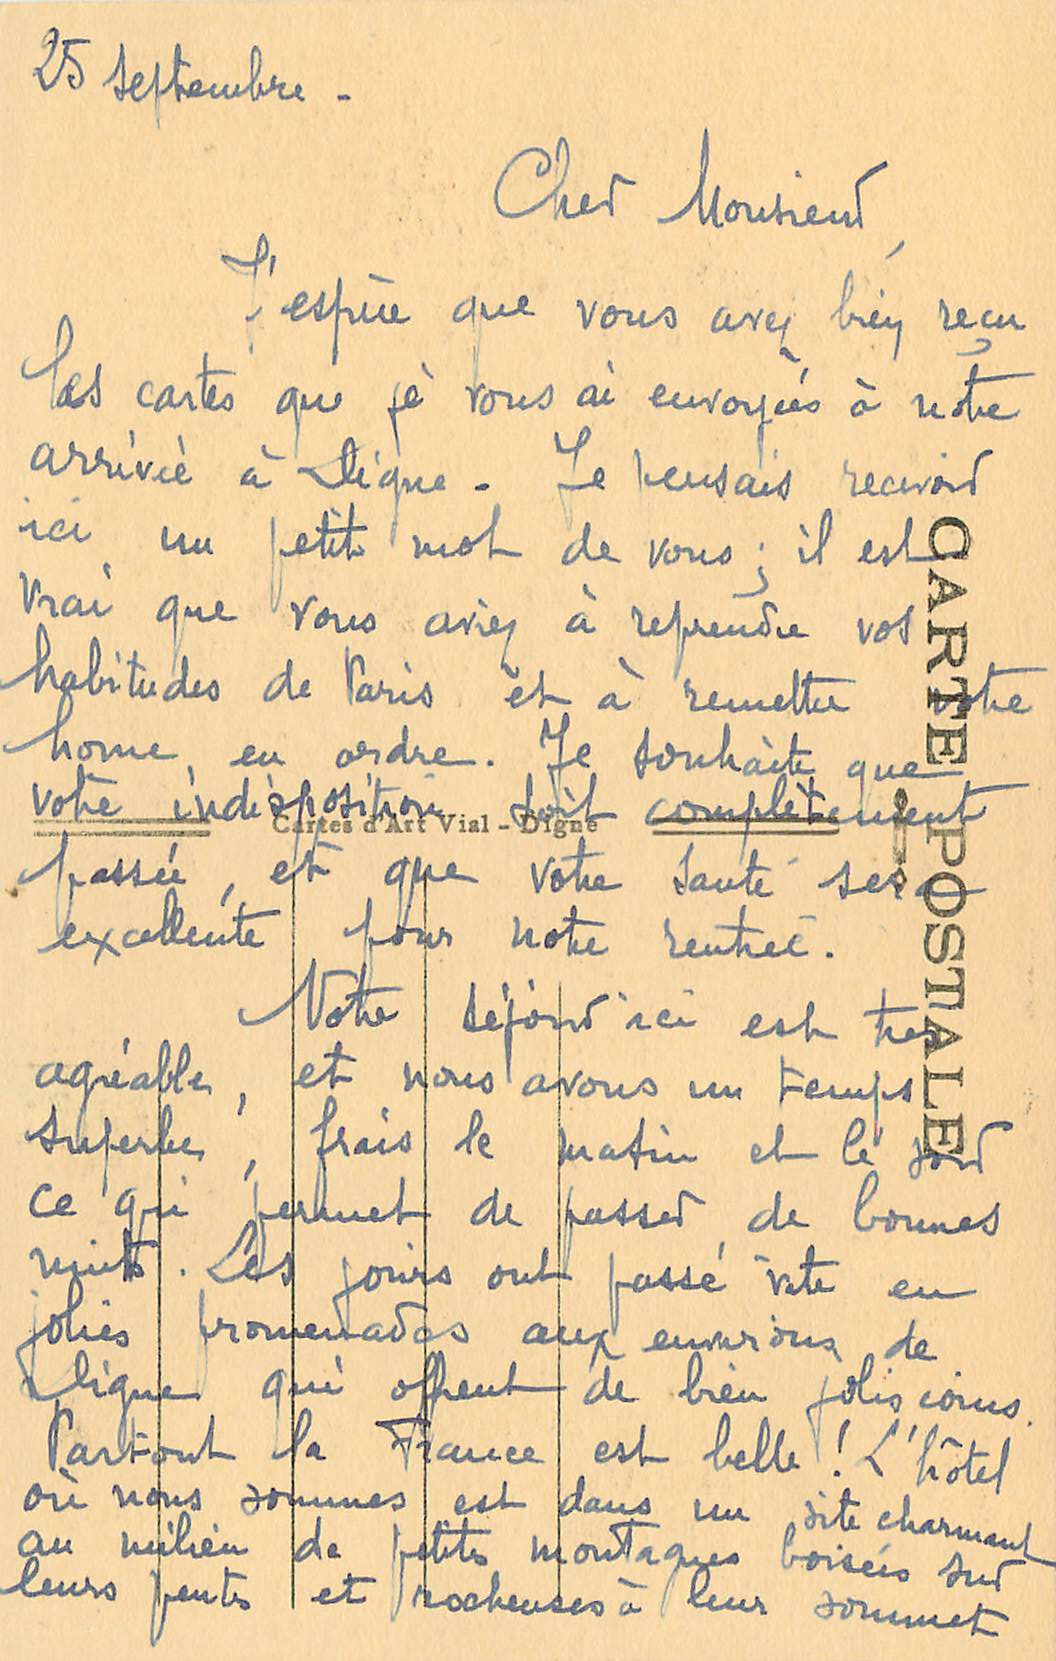 25 septembre -
Cher Monsieur,
J'espère que vous avez bien reçu
les cartes que je vous ai envoyées à notre
arrivée à Digne - Je pensais recevoir
ici un petit mot de vous ; il est
vrai que vous aviez à reprendre vos
habitudes de Paris et à remettre votre
home en ordre. Je souhaite que
votre indisposition soit complètement
passée, et que votre santé sera
excellente pour notre rentrée.
Notre séjour ici est très
agréable, et nous avons un temps
superbe, frais le matin et le soir
ce qui permet de passer de bonnes
nuits. Les jours ont passé vite en
jolies promenades aux environs de
Digne qui offrent de bien jolis coins.
Partout la France est belle ! L'hôtel
où nous sommes est dans un site charmant
au milieu de petites montagnes boisées sur
leurs pentes et rocheuses à leur sommet
CARTE POSTALE
Cartes d'Art Vial - Digne